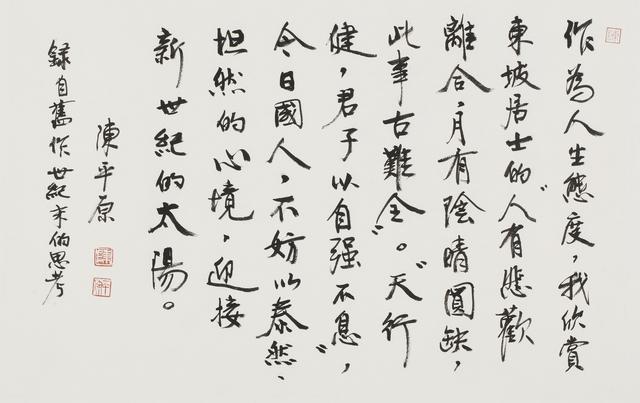 作為人生態度，我欣賞
東坡居士的"人有悲歡
離合，月有陰晴圓缺，
此事古難全"。"天行
健，君子以自强不息"，
今日國人，不妨以泰然、
坦然的心境，迎接
新世紀的太陽。
陳平原
録自舊作世紀末的思考